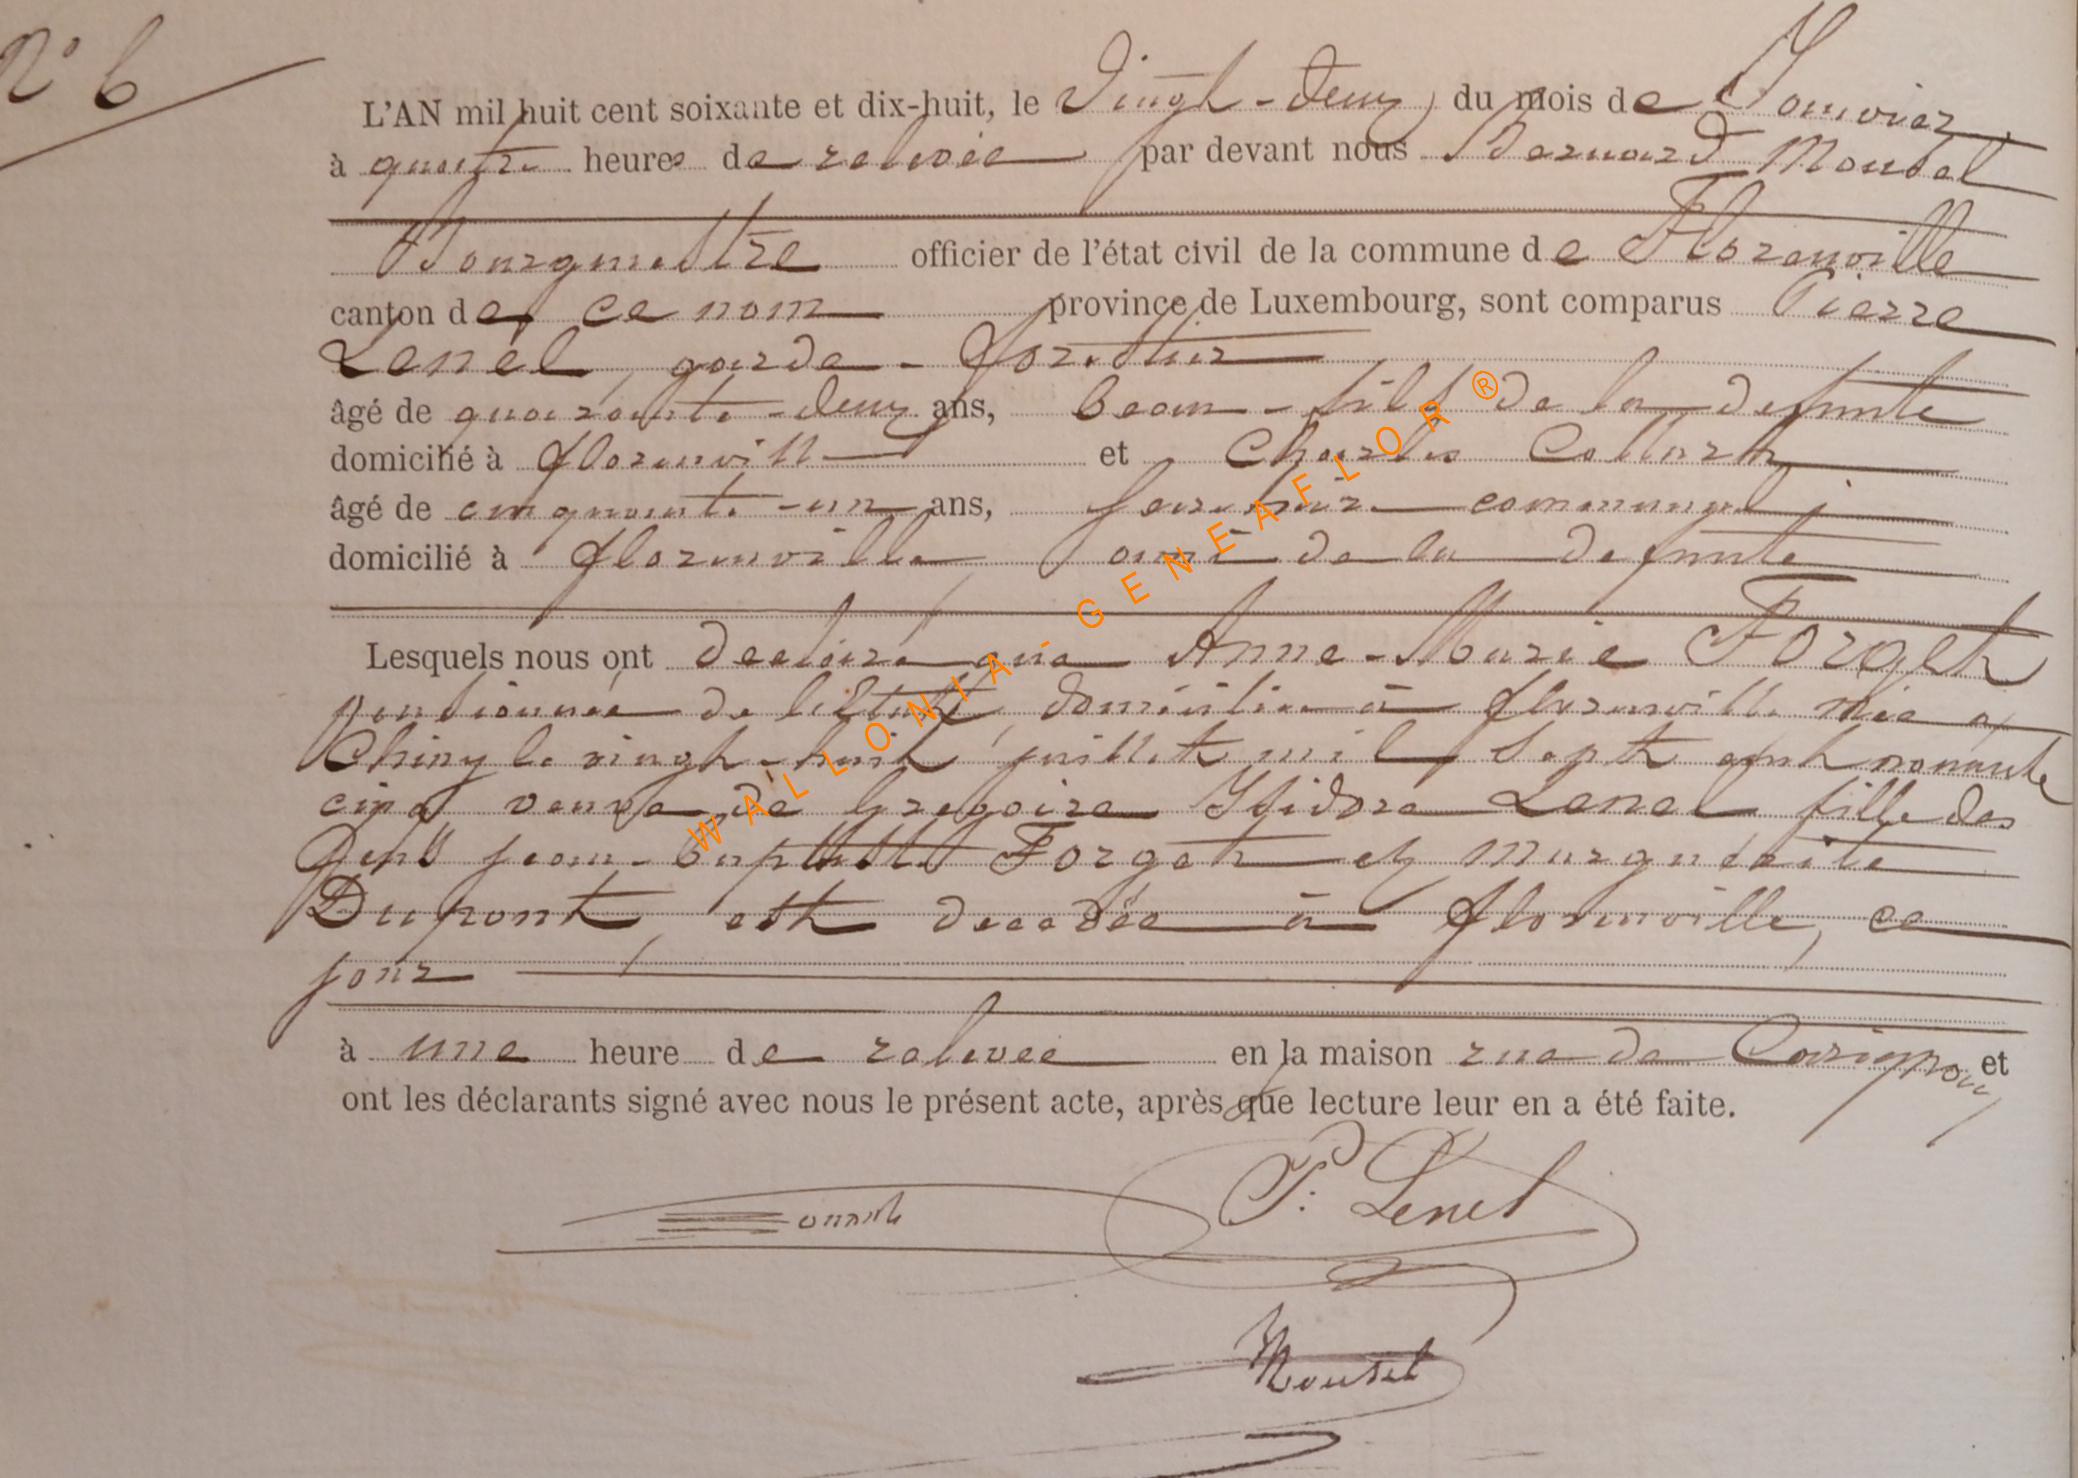 N° 6
L'AN mil huit cent soixante et dix-huit, le Vingt-deux du mois de Janvier
à quatre heures de relevée par devant nous Bernard Mousel
Bourgmestre officier de l'état civil de la commune de Florenville
canton de ce nom province de Luxembourg, sont comparus Pierre
Lenel, garde-forestier
âgé de quarante-deux ans, beau-fils de la defunte
domicilié à florenville et Charles Collard
âgé de cinquante-un ans,
domicilié à florenville, ami de la defunte
Lesquels nous ont declaré que Anne-Marie Forget
pensionnée de l'état, domiciliée à florenville née à
Chiny le vingt-huit juillet mil sept cent nonante
cinq veuve de Gregoire Isidore Lenel fille des
feus jean-baptiste Forget et Marguerite
Dupont, est decedée à florenville, ce
jour
à une heure de relevee en la maison rue de Carignan et
ont les déclarants signé avec nous le présent acte, après que lecture leur en a été faite.
P. Lenel
Mousel
WALLONIA - GENEAFLOR ®